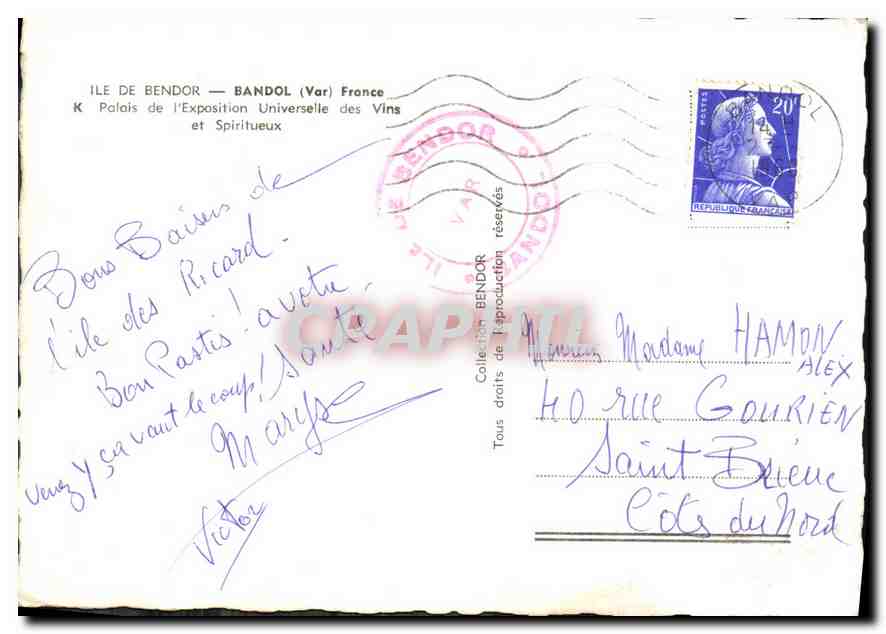 ILE DE BENDOR — BANDOL (Var) France
K Palais de l'Exposition Universelle des Vins
et Spiritueux
Bons Baisers de
l'ile des Ricard.
Bon Pastis! a votre
Santé
venez y ça vaut le coup!
Maryse
Victor
ILE DE BENDOR
VAR
BANDOL
Collection BENDOR
Tous droits de Reproduction réservés
BANDOL
14
VAR
POSTES
20F
REPUBLIQUE FRANÇAISE
CPAPHIL
Monsieur Madame HAMON
ALEX
40 rue GOURIEN
Saint Brieuc
Côts du Nord